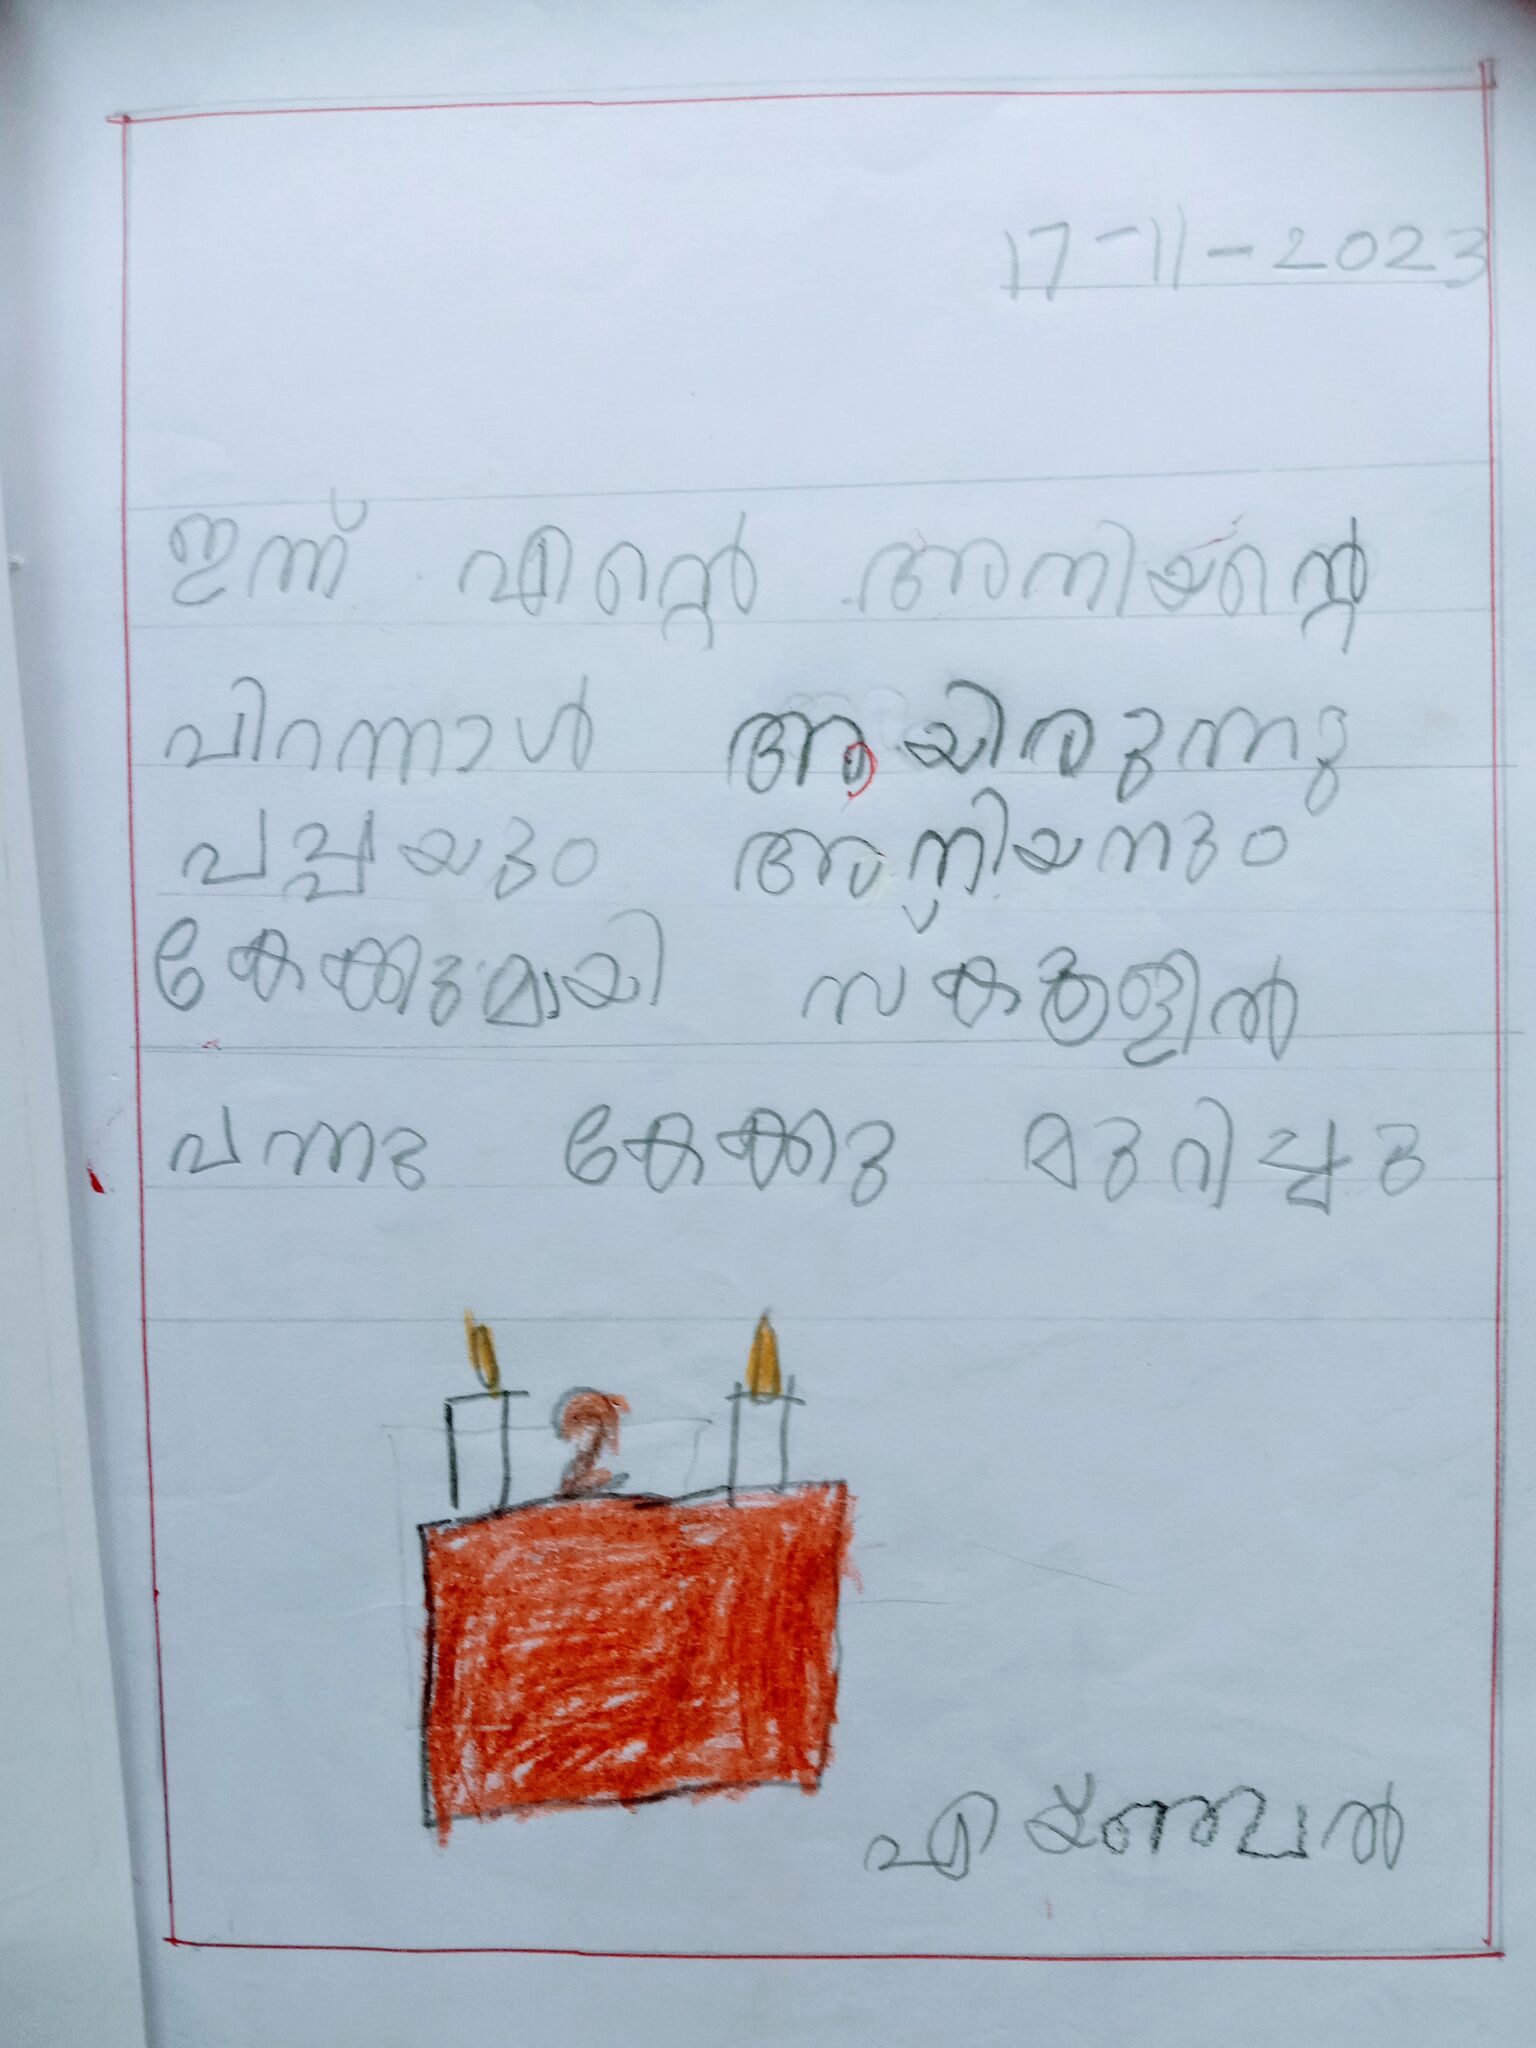 17-11-2023
ഇന്ന് എന്റെ അനിയന്റെ
പിറന്നാൾ ആയിരുന്നു
പപ്പയും അനിയനും
കേക്കുമായി സകൂളിൽ
വന്നു കേക്കു മുറിച്ചു
2